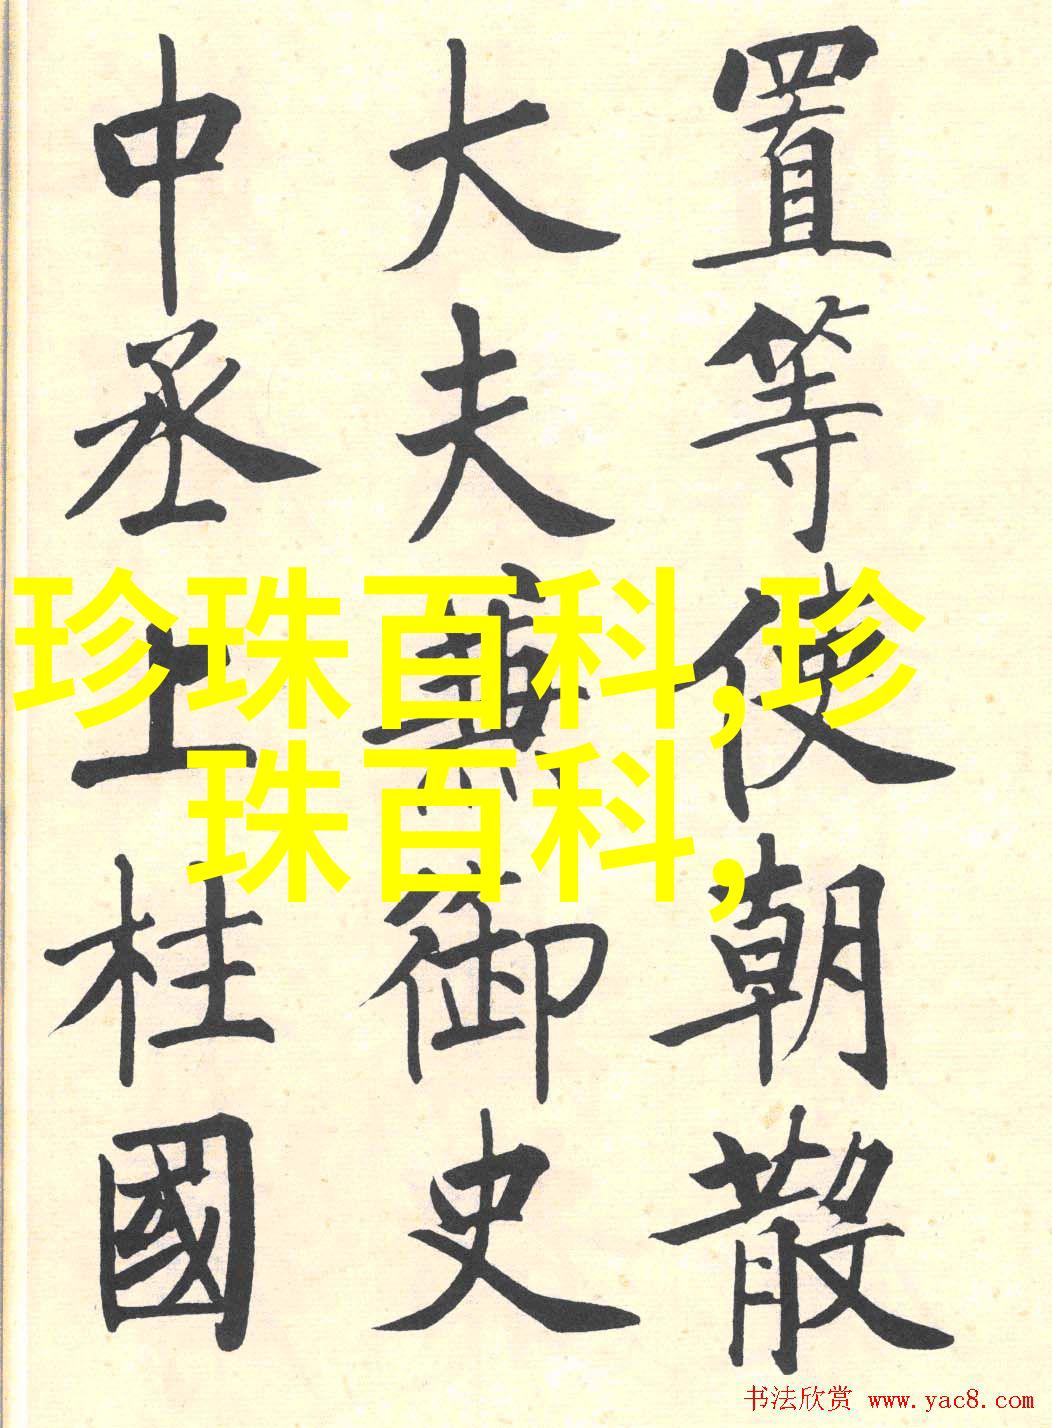 置等使朝散
大夫兼御史
中丞上柱國
珍珠百科,珍
珠百科,
书法欣赏 www.yac8.com